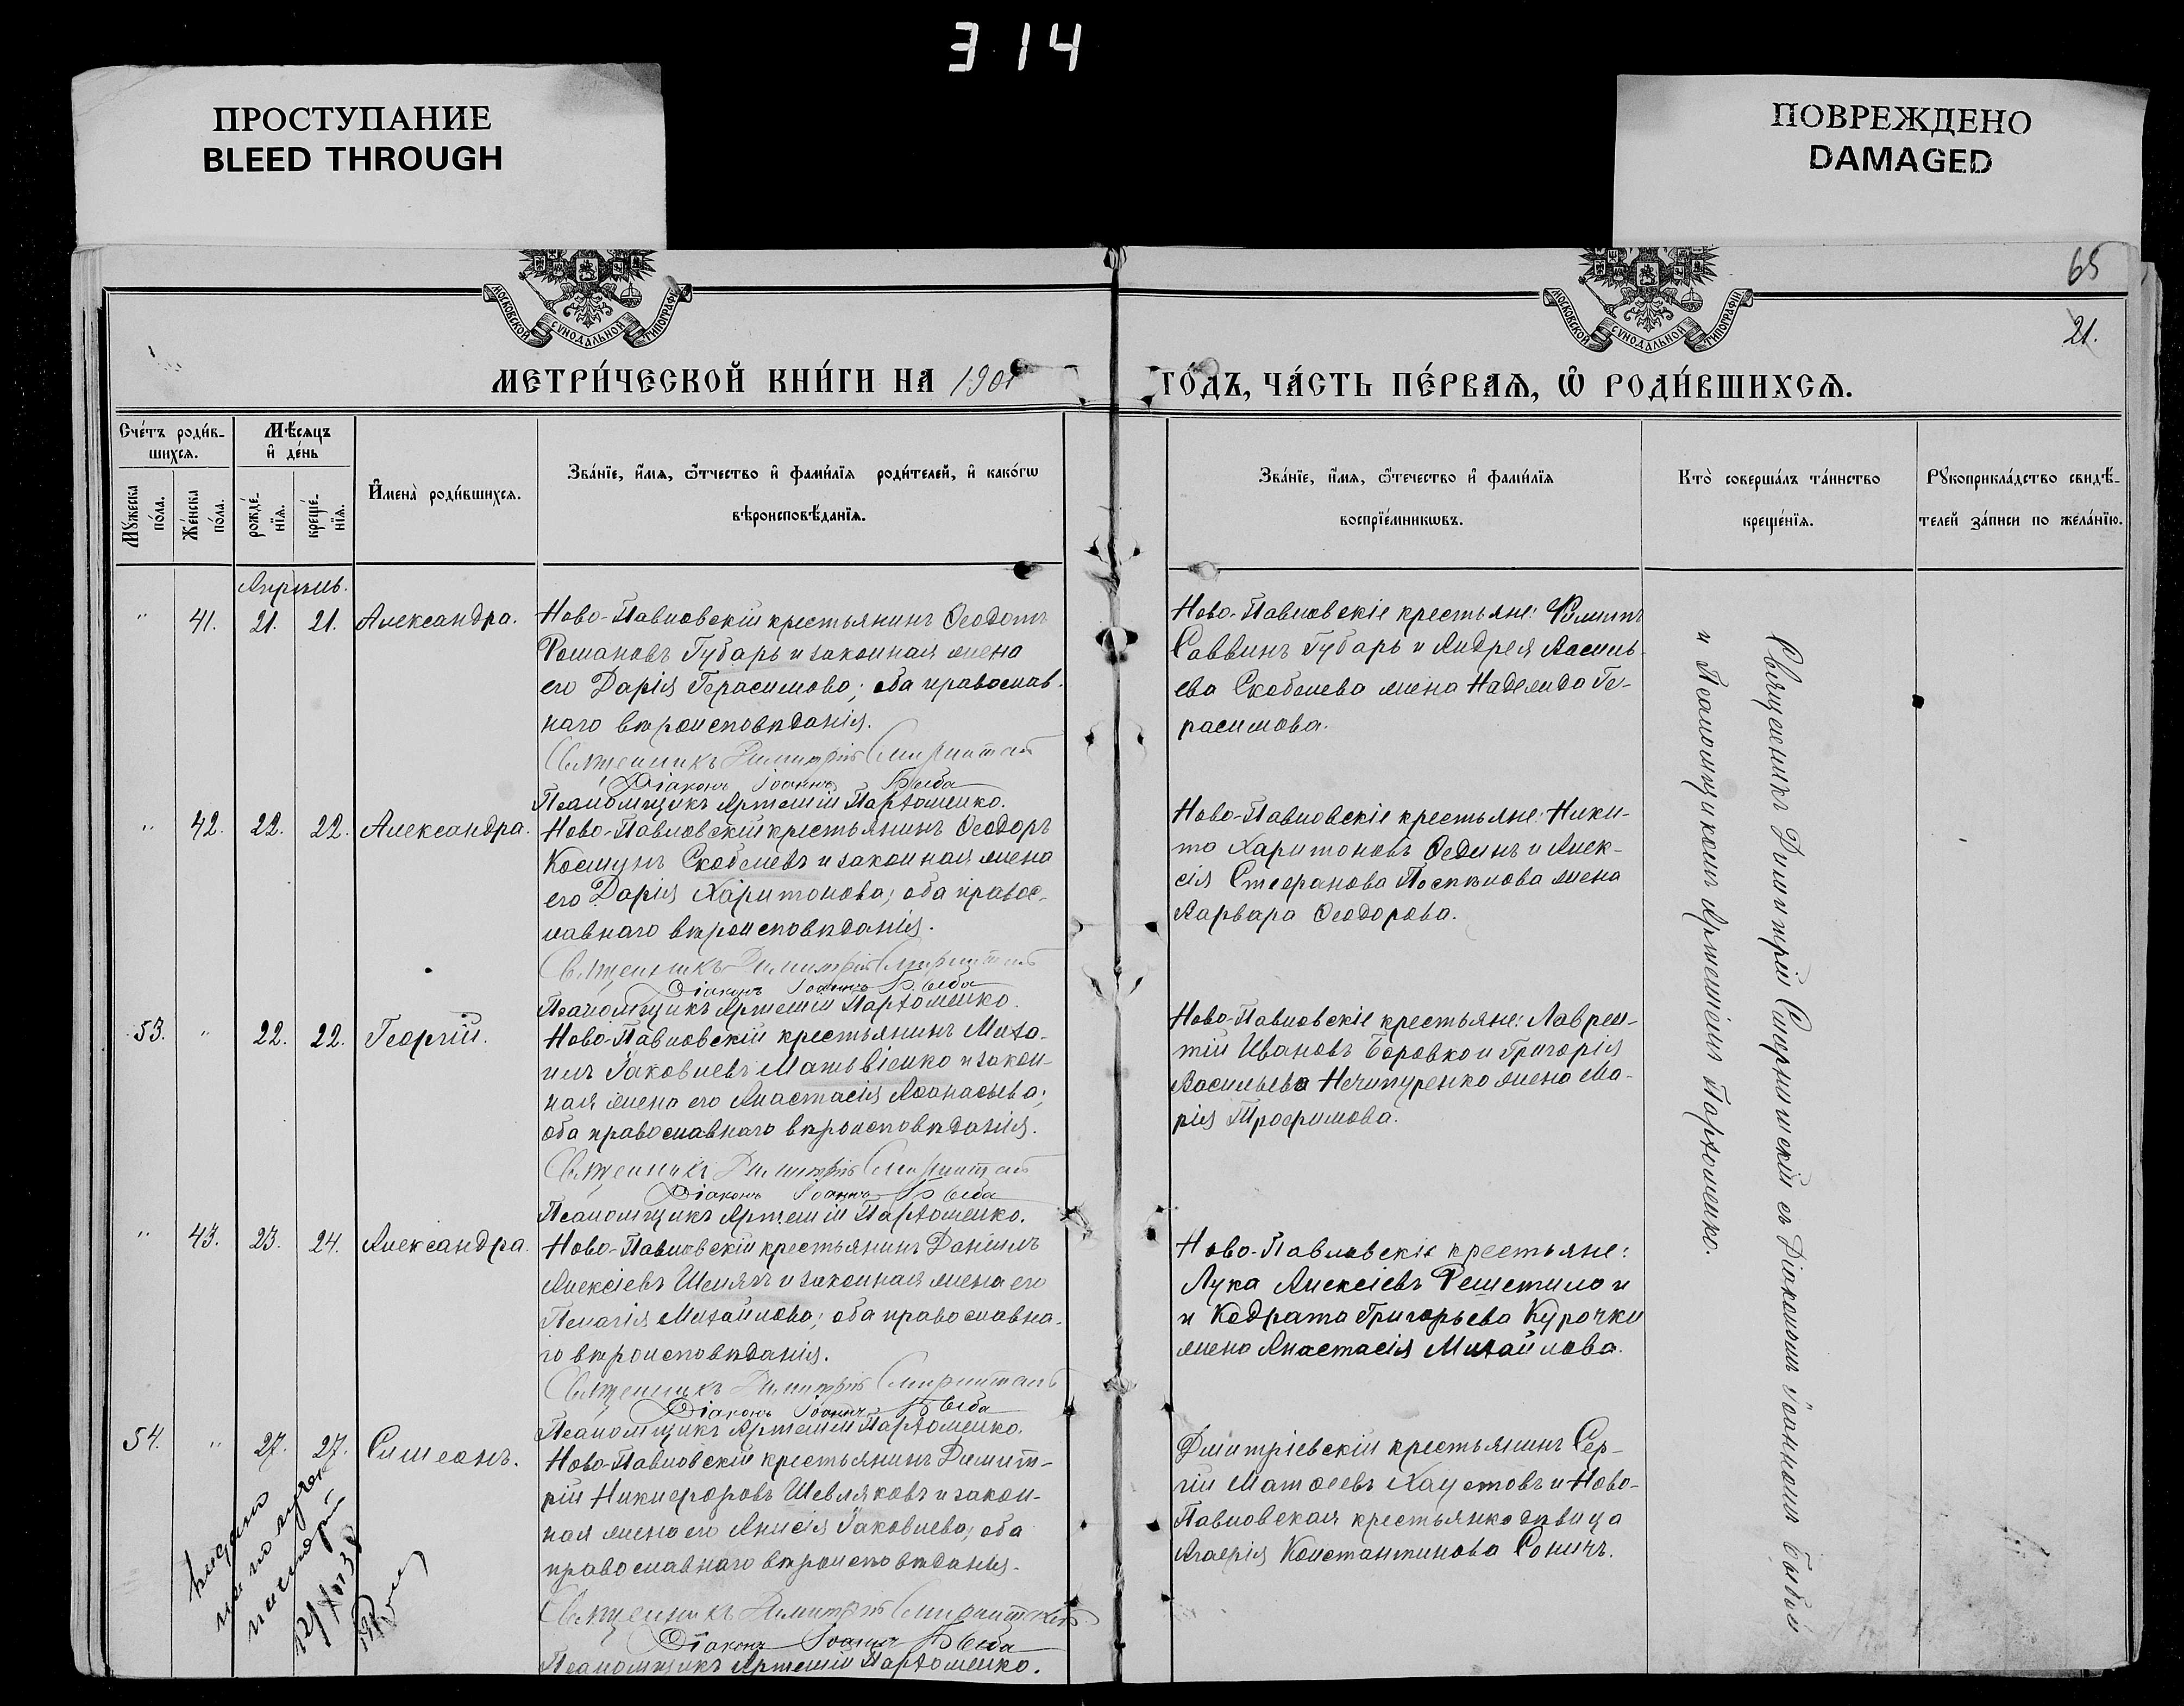 314
ПРОСТУПАНИЕ
BLEED THROUGH
ПОВРЕЖДЕНО
DAMAGED
МОСКОВСКОЙ СѴНОДАЛЬНОЙ ТИПОГРАФІИ
МОСКОВСКОЙ СѴНОДАЛЬНОЙ ТИПОГРАФІИ
65
21.
МЕТРИ́ЧЕСКОЙ КНИ́ГИ НА 1901
ГО́ДЪ, ЧА́СТЬ ПЕ́РВАѦ, Ѡ҆ РОДИ́ВШИХСѦ.
Сче́тъ роди́в-
шихсѧ.
Мꙋжеска по́ла.
Же́нска по́ла.
Мѣ́сѧцъ
и҆ де́нь
рожде́-
нїѧ.
креще́-
нїѧ.
И҆мена̀ роди́вшихсѧ.
Зва́нїе, и҆́мѧ, ѻ҆́тчество и҆ фами́лїѧ роди́телей, и҆ како́гѡ
вѣроисповѣ́данїѧ.
Зва́нїе, и҆́мѧ, ѻ҆те́чество и҆ фами́лїѧ
воспрїе́мникѡвъ.
Кто̀ соверша́лъ та́инство
креще́нїѧ.
Рꙋкоприкла́дство свидѣ́-
телей за́писи по жела́нїю.
Апрѣль.
" 41. 21. 21. Александра.
Ново-Павловскій крестьянинъ Ѳеодотъ
Романовъ Губарь и законная жена
его Дарія Герасимова; оба православ-
наго вѣроисповѣданія.
Священникъ Димитрій
Діаконъ Іоаннъ Быба
Псаломщикъ Артемій Пархоменко.
Ново-Павловскіе крестьяне: Филиппъ
Саввинъ Губарь и Андрея Василь-
ева Скобелева жена Надежда Ге-
расимова.
" 42. 22. 22. Александра.
Ново-Павловскій крестьянинъ Ѳеодоръ
Косминъ Скобелевъ и законная жена
его Дарія Харитонова; оба правос-
лавнаго вѣроисповѣданія.
Священникъ Димитрій
Діаконъ Іоаннъ Быба
Псаломщикъ Артемій Пархоменко.
Ново-Павловскіе крестьяне: Ники-
та Харитоновъ Ѳединъ и Алек-
сія Стефанова Поспѣлова жена
Варвара Ѳеодорова.
53. " 22. 22. Георгій.
Ново-Павловскій крестьянинъ Миха-
илъ Іаковлевъ Матвіенко и закон-
ная жена его Анастасія Аѳанасьева;
оба православнаго вѣроисповѣданія.
Священникъ Димитрій
Діаконъ Іоаннъ Быба
Псаломщикъ Артемій Пархоменко.
Ново-Павловскіе крестьяне: Лаврен-
тій Ивановъ Боровко и Григорія
Васильева Нечипуренко жена Ма-
рія Трофимова.
" 43. 23. 24. Александра.
Ново-Павловскій крестьянинъ Даніилъ
Алексіевъ и законная жена его
Пелагія Михайлова; оба православна-
го вѣроисповѣданія.
Священникъ Димитрій
Діаконъ Іоаннъ Быба
Псаломщикъ Артемій Пархоменко.
Ново-Павловскіе крестьяне:
Лука Алексіевъ Решетило и
и Кодрата Григорьева Курочки
жена Анастасія Михайлова.
54. " 27. 27. Симеонъ.
Ново-Павловскій крестьянинъ Димит-
рій Никифоровъ Шевляковъ и закон-
ная жена его Анисія Іаковлева; оба
православнаго вѣроисповѣданія.
Священникъ Димитрій
Діаконъ Іоаннъ Быба
Псаломщикъ Артемій Пархоменко.
Димитріевскій крестьянинъ Сер-
гій Матѳеевъ Хаустовъ и Ново-
Павловская крестьянка дѣвица
Агафія Константинова Сопичъ.
Священникъ Димитрій съ Діакономъ Іоанномъ Быбой
и Псаломщикомъ Артеміемъ Пархоменко.